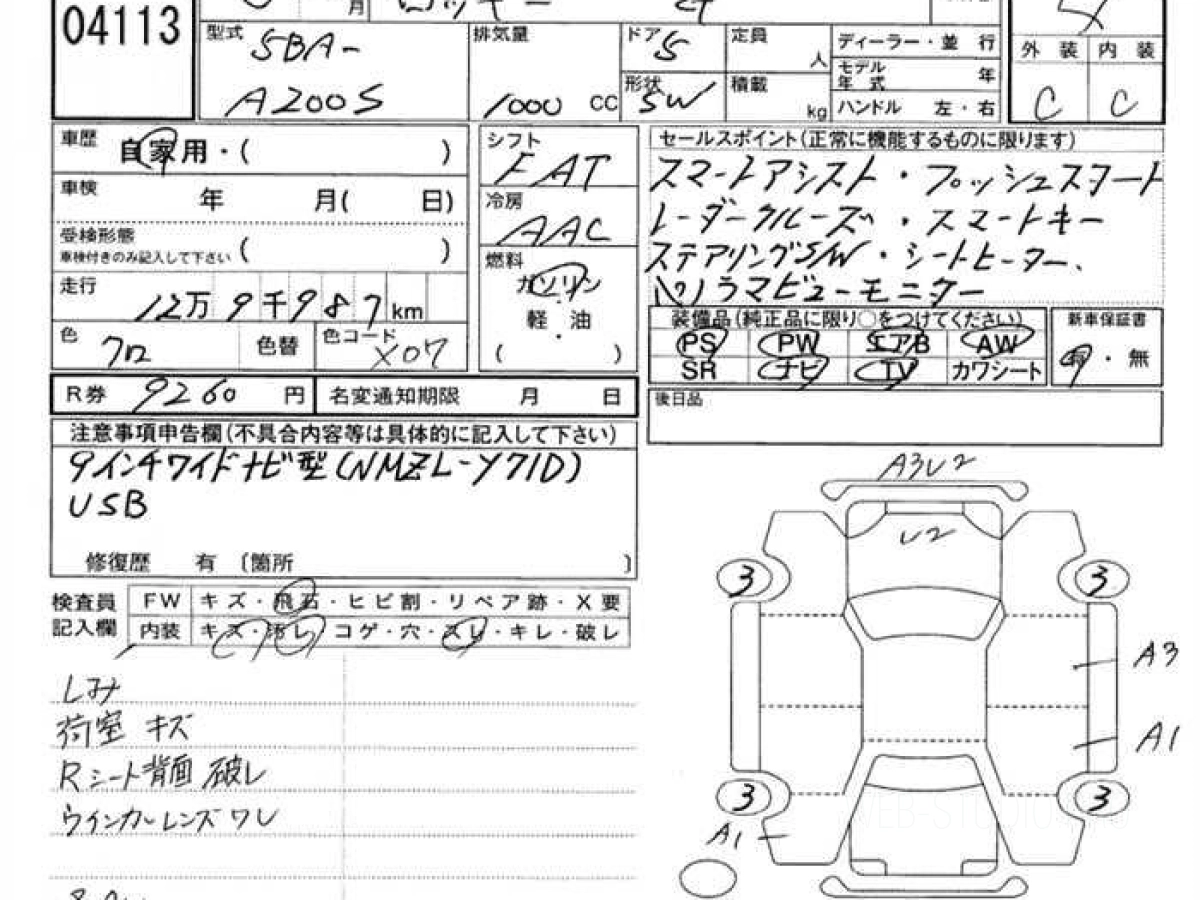 04113
月
型式 5BA-
A200S
排気量
1000 CC
ドア 5
形状 SW
定員 人
積載 kg
ディーラー・並 行
モデル年式 年
ハンドル 左・右
外 装 内 装
C C
車歴 自家用・( )
車検 年 月( 日)
受検形態
車検付きのみ記入して下さい ( )
走行 12万9千987km
色 クロ 色替 色コード X07
シフト FAT
冷房 AAC
燃料
ガソリン
軽・油
( )
セールスポイント(正常に機能するものに限ります)
スマートアシスト・プッシュスタート
レーダークルーズ・スマートキー
ステアリングSW・シートヒーター、
パノラマビューモニター
装備品(純正品に限り○をつけてください)
PS PW エアB AW
SR ナビ TV カワシート
新車保証書
有・無
R券 9260 円 名変通知期限 月 日
後日品
注意事項申告欄(不具合内容等は具体的に記入して下さい)
9インチワイドナビ型(NMZL-Y71D)
USB
修復歴 有 〔箇所 〕
検査員記入欄
FW キズ・飛石・ヒビ割・リペア跡・X要
内装 キズ・汚レ・コゲ・穴・スレ・キレ・破レ
しみ
荷室 キズ
Rシート背面 破レ
ウインカーレンズワレ
A3U2
U2
3 3
A3
A1
3 3
A1